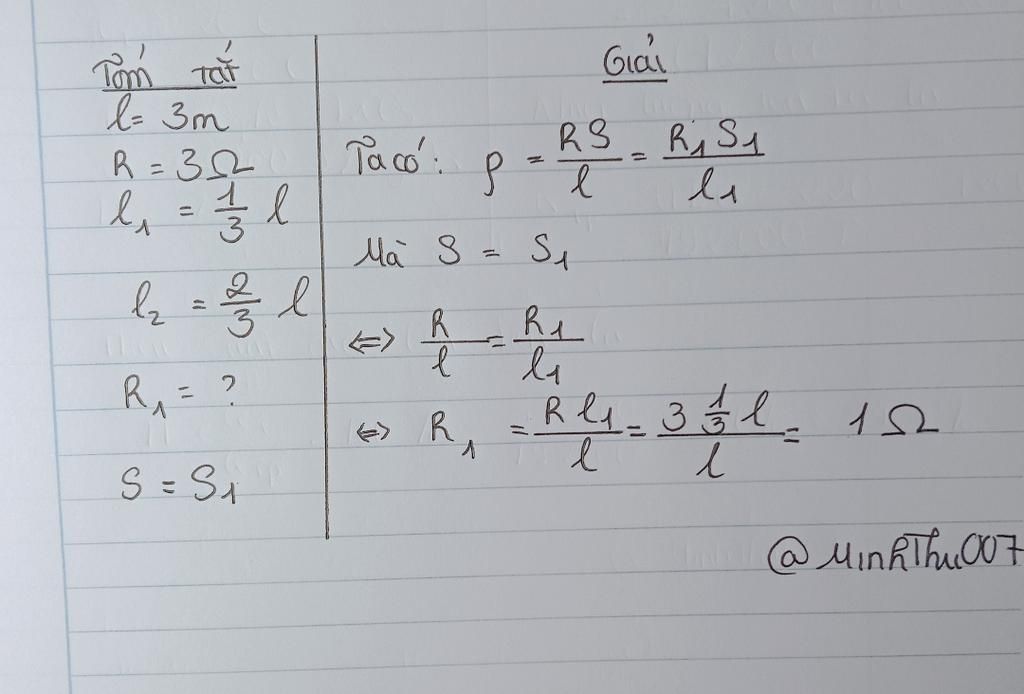 Tóm tắt
l = 3m
R = 3Ω
l₁ = 1/3 l
l₂ = 2/3 l
R₁ = ?
S = S₁
Giải
Ta có: ρ = RS/l = R₁S₁/l₁
Mà S = S₁
⇔ R/l = R₁/l₁
⇔ R₁ = Rl₁/l = 3 1/3 l/l = 1Ω
@MinhThu007